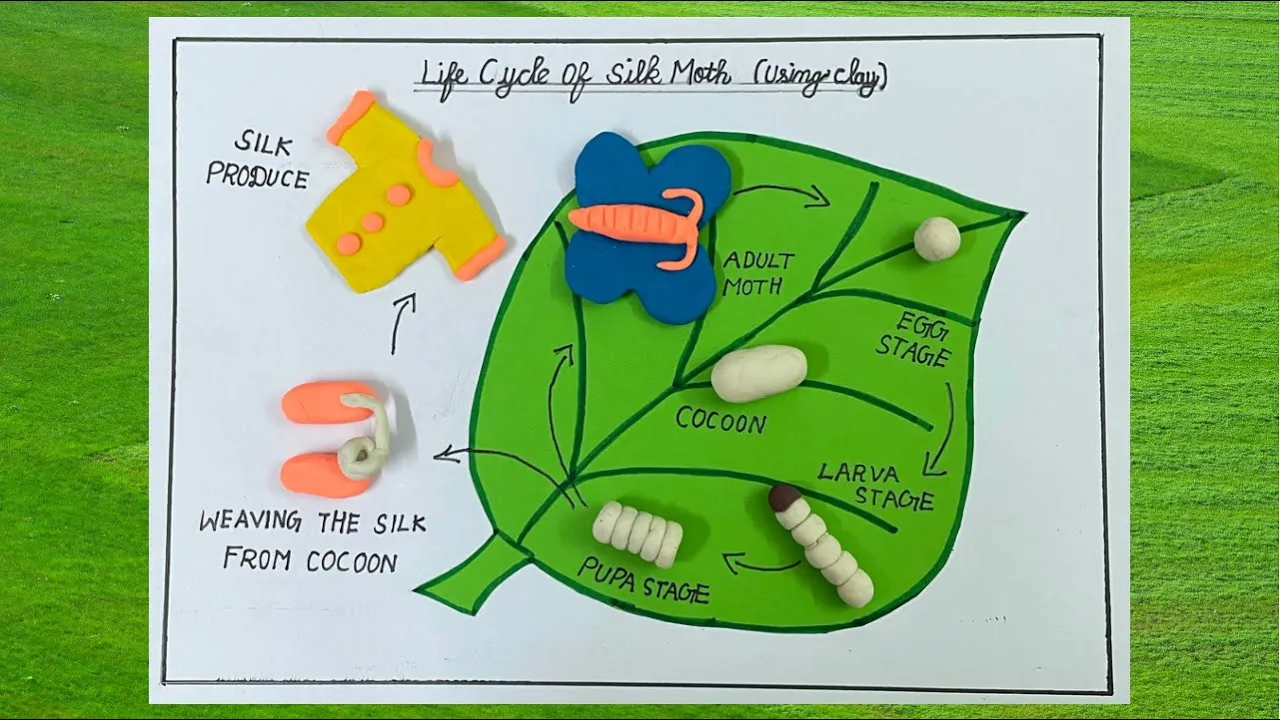 Life Cycle Of Silk Moth (Using clay)
SILK
PRODUCE
ADULT
MOTH
EGG
STAGE
COCOON
LARVA
STAGE
PUPA STAGE
WEAVING THE SILK
FROM COCOON